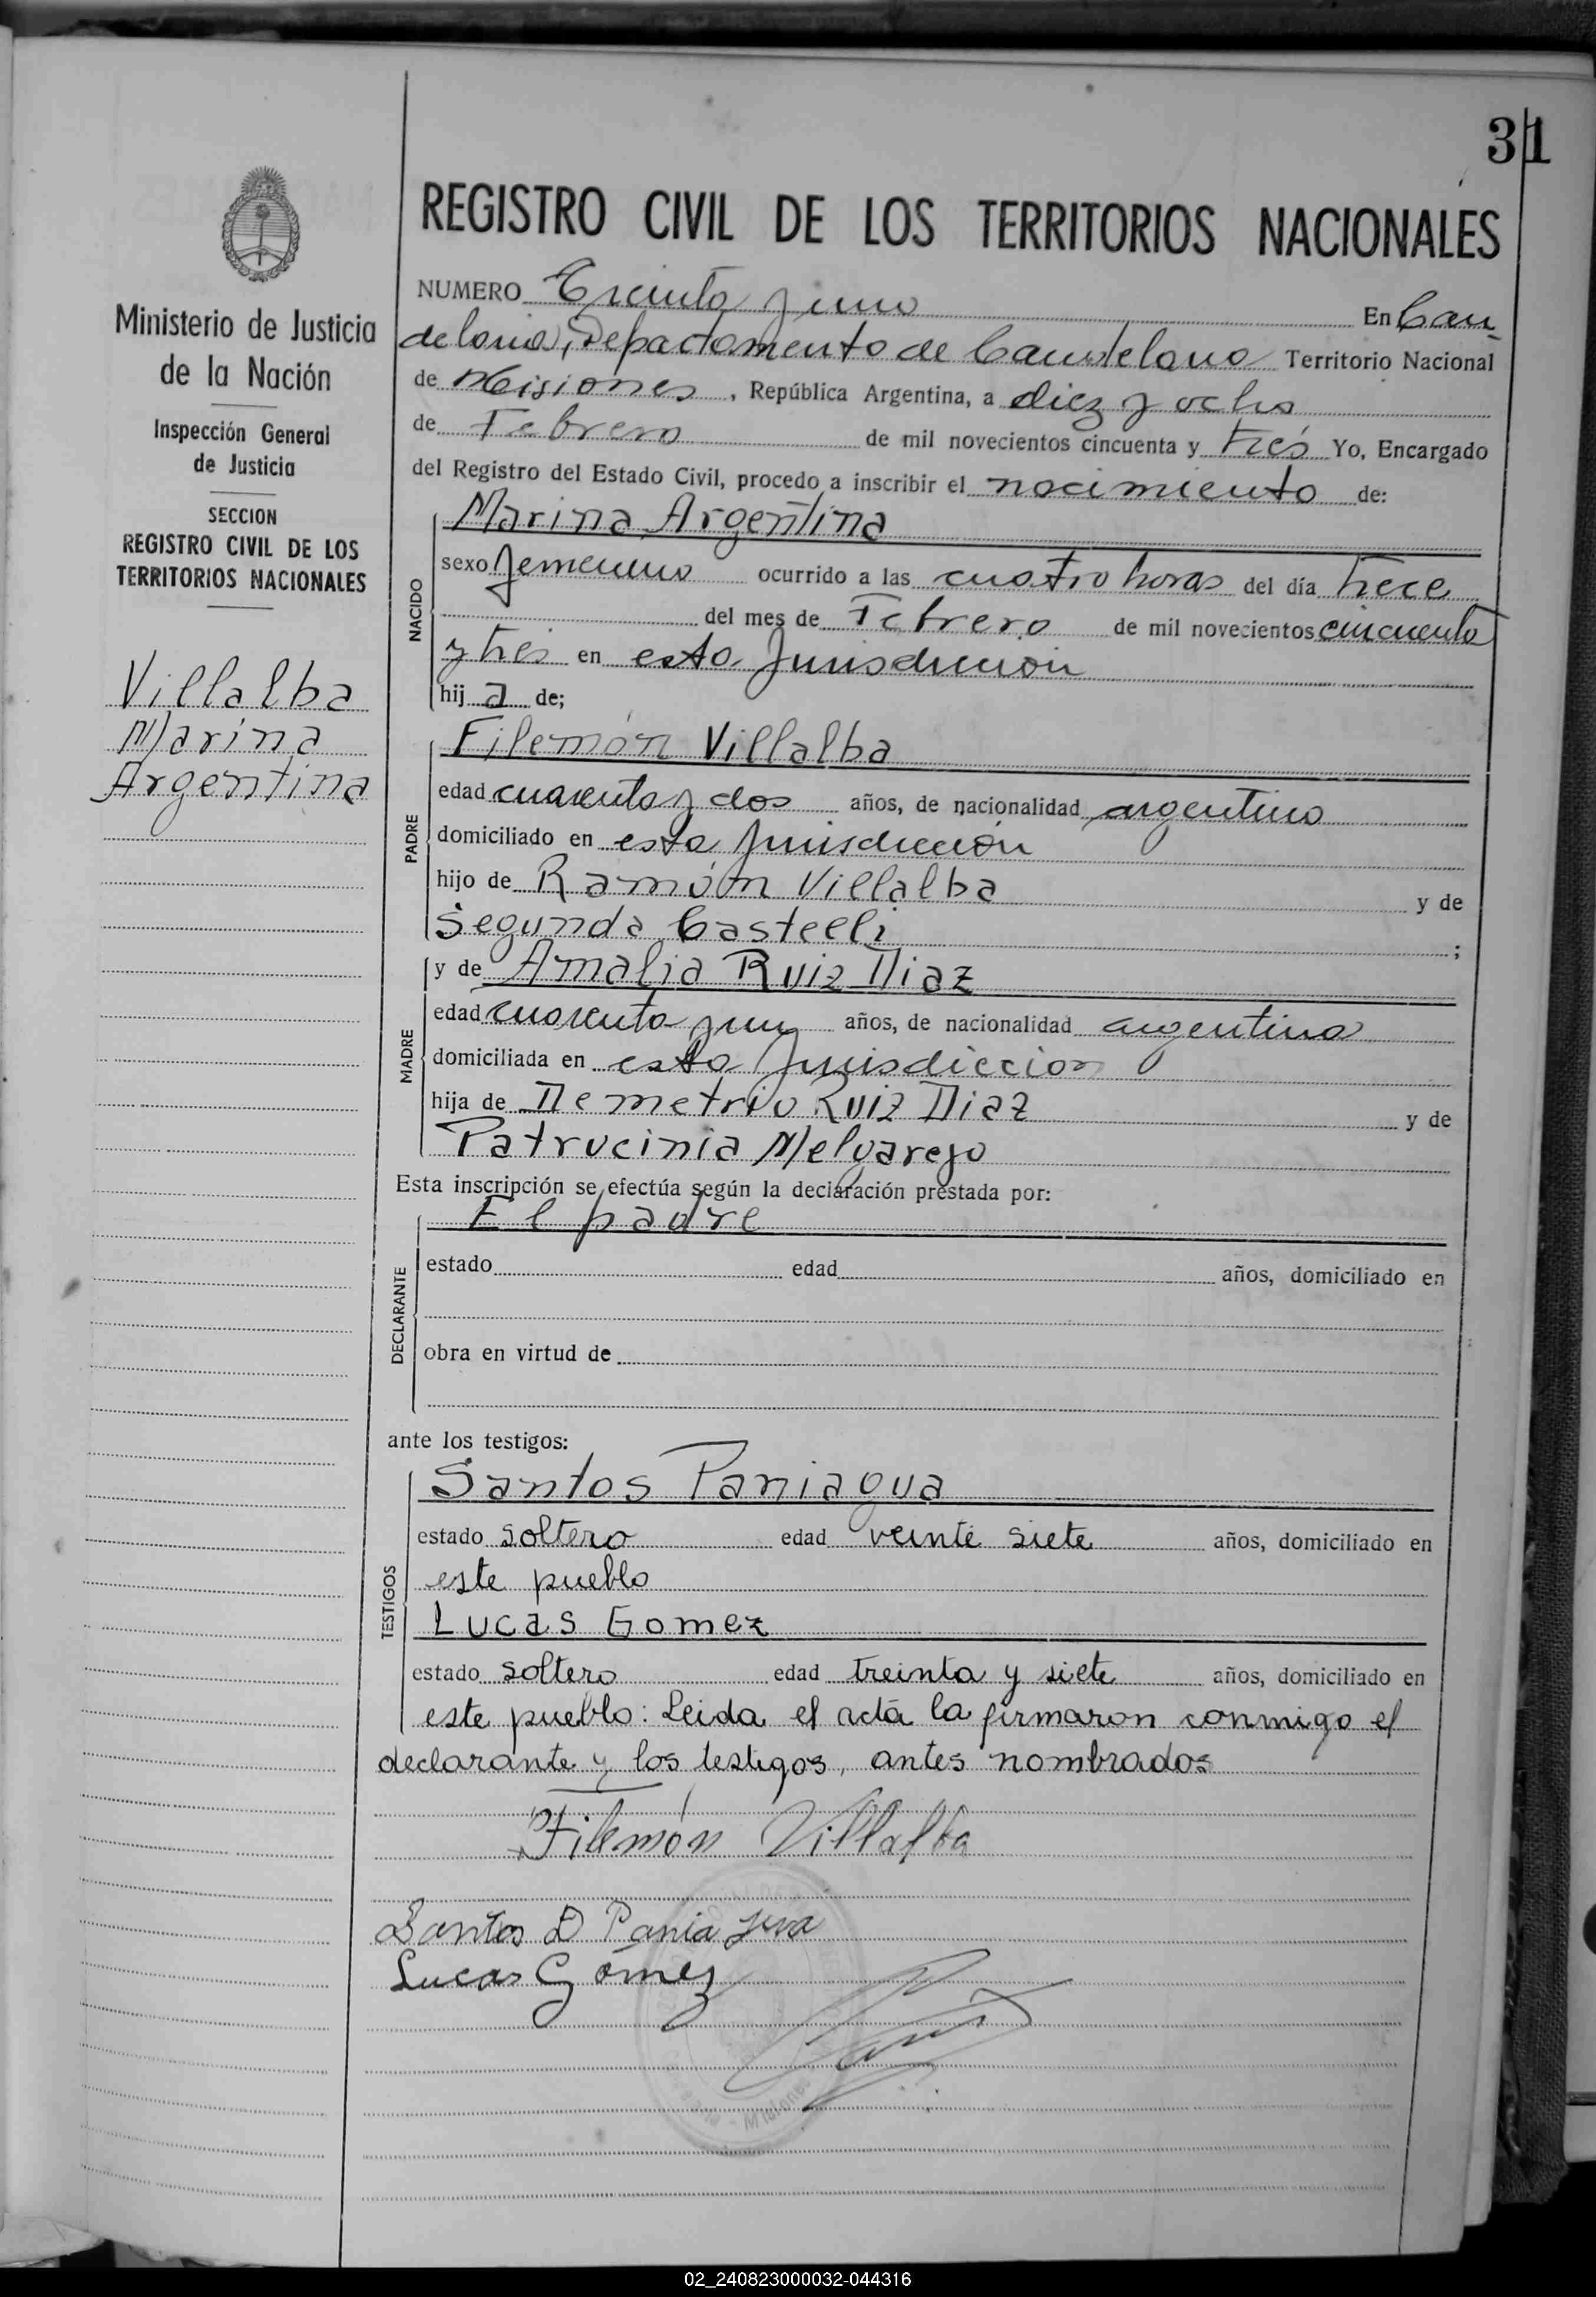 31
REGISTRO CIVIL DE LOS TERRITORIOS NACIONALES
Ministerio de Justicia
de la Nación
Inspección General
de Justicia
SECCION
REGISTRO CIVIL DE LOS
TERRITORIOS NACIONALES
Villalba
Marina
Argentina
NUMERO Treinta y uno En Can
delaria, Departamento de Candelaria Territorio Nacional
de Misiones, República Argentina, a diez y ocho
de Febrero de mil novecientos cincuenta y tres Yo, Encargado
del Registro del Estado Civil, procedo a inscribir el nacimiento de:
NACIDO
Marina Argentina
sexo femenino ocurrido a las cuatro horas del día trece
del mes de Febrero de mil novecientos cincuenta
y tres en esta Jurisdicción
hij a de;
PADRE
Filemón Villalba
edad cuarenta y dos años, de nacionalidad argentino
domiciliado en esta Jurisdicción
hijo de Ramón Villalba y de
Segunda Castelli ;
MADRE
y de Amalia Ruiz Diaz
edad cuarenta y un años, de nacionalidad argentina
domiciliada en esta Jurisdiccion
hija de Demetrio Ruiz Diaz y de
Patrucinia Melgarejo
Esta inscripción se efectúa según la declaración prestada por:
DECLARANTE
El padre
estado edad años, domiciliado en
obra en virtud de
ante los testigos:
TESTIGOS
Santos Paniagua
estado soltero edad veinte siete años, domiciliado en
este pueblo
Lucas Gomez
estado soltero edad treinta y siete años, domiciliado en
este pueblo: Leida el acta la firmaron conmigo el
declarante y los testigos, antes nombrados
Filemón Villalba
Santos D Paniagua
Lucas Gómez
Misiones
02_240823000032-044316